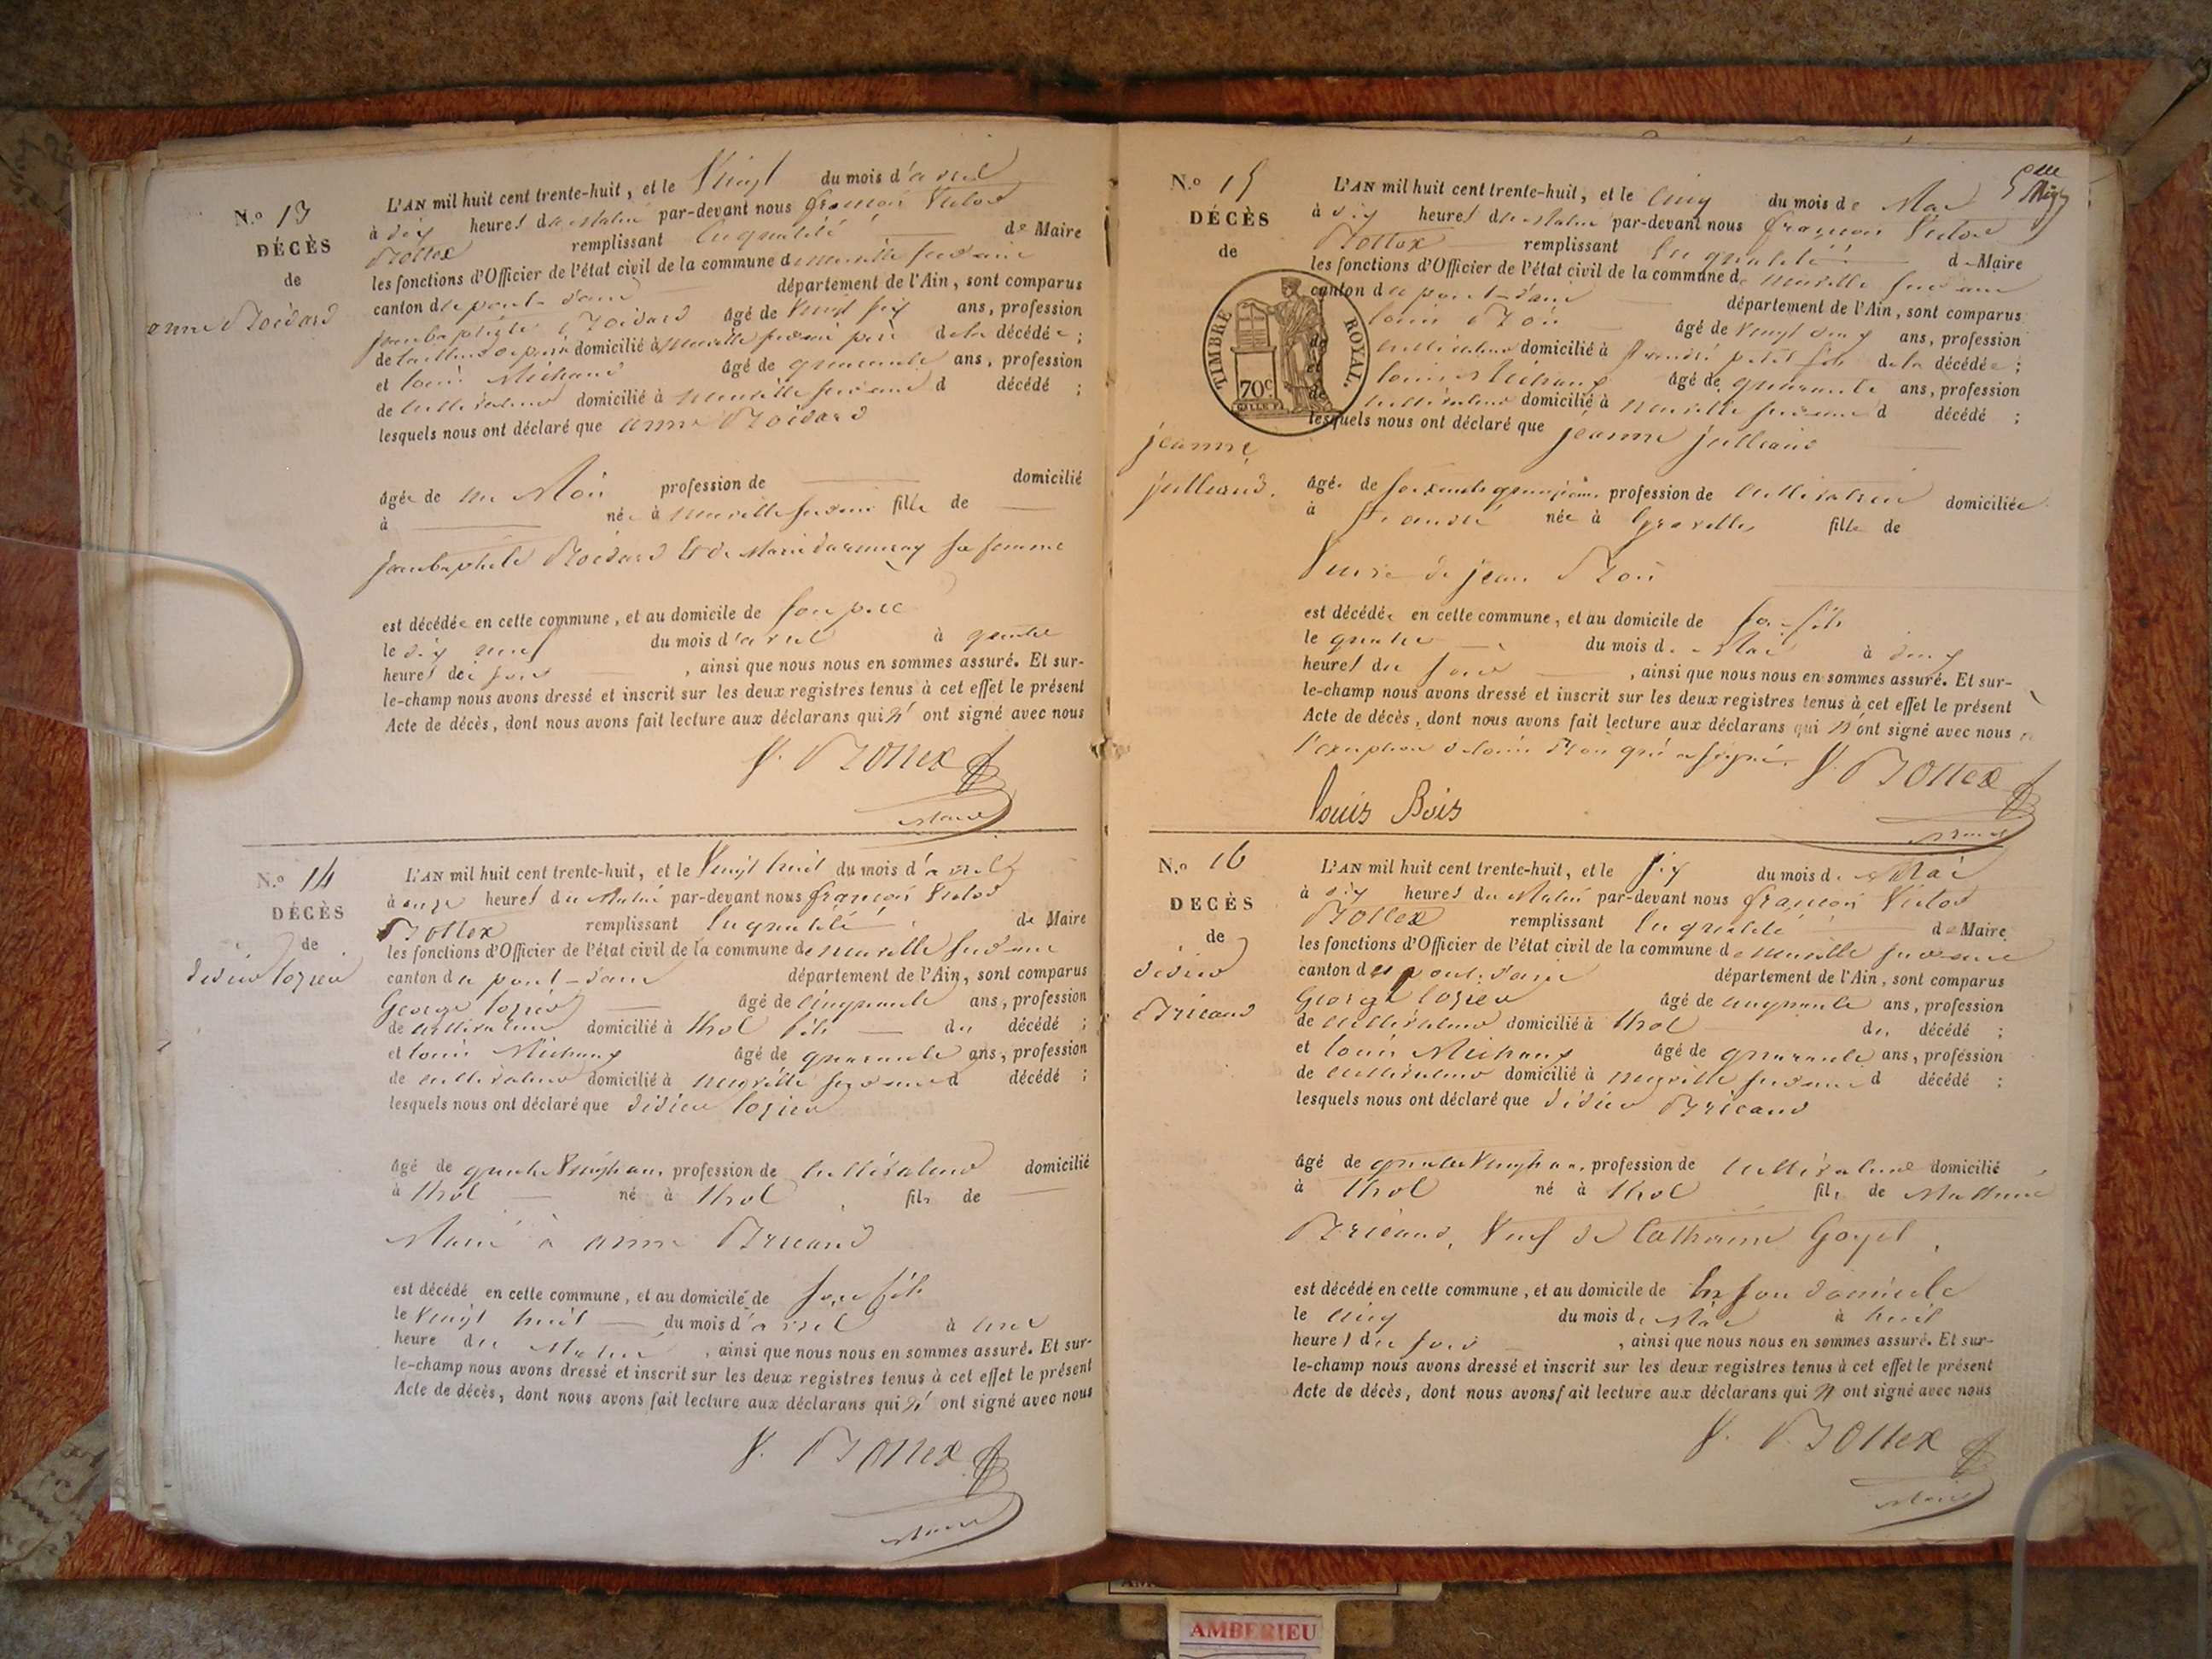 N.º 13
DÉCÈS
de
anne Boidard
L'AN mil huit cent trente-huit, et le Vingt du mois d'avril
à dix heures du Matin par-devant nous françois Victor
Bottex remplissant en qualité de Maire
les fonctions d'Officier de l'état civil de la commune de neuville sur ain
canton du pont-d'ain département de l'Ain, sont comparus
jean baptiste Boidard âgé de Vingt six ans, profession
de domicilié à neuville sur ain père de la décédée ;
et louis Michaud âgé de quarante ans, profession
de cultivateur domicilié à neuville sur ain d décédé ;
lesquels nous ont déclaré que anne Boidard
âgée de un Mois profession de domicilié
à née à neuville sur ain fille de
jean baptiste Boidard et de Marie sa femme
est décédée en cette commune, et au domicile de son père
le dix neuf du mois d'avril à quatre
heures du soir , ainsi que nous nous en sommes assuré. Et sur-
le-champ nous avons dressé et inscrit sur les deux registres tenus à cet effet le présent
Acte de décès, dont nous avons fait lecture aux déclarans qui n' ont signé avec nous
V. Bottex
Maire
N.º 14
DÉCÈS
de
didier lozier
L'AN mil huit cent trente-huit, et le Vingt huit du mois d'avril
à onze heures du Matin par-devant nous françois Victor
Bottex remplissant en qualité de Maire
les fonctions d'Officier de l'état civil de la commune de neuville sur ain
canton du pont-d'ain département de l'Ain, sont comparus
George lozier âgé de cinquante ans, profession
de cultivateur domicilié à thol fils du décédé ;
et louis Michaud âgé de quarante ans, profession
de cultivateur domicilié à neuville sur ain d décédé ;
lesquels nous ont déclaré que didier lozier
âgé de quatre Vingts ans profession de cultivateur domicilié
à thol né à thol fils de
Marié à anne Bricaud
est décédé en cette commune, et au domicile de son fils
le Vingt huit du mois d'avril à une
heure du Matin , ainsi que nous nous en sommes assuré. Et sur-
le-champ nous avons dressé et inscrit sur les deux registres tenus à cet effet le présent
Acte de décès, dont nous avons fait lecture aux déclarans qui n' ont signé avec nous
V. Bottex
Maire
5me
N.º 15
DÉCÈS
de
TIMBRE ROYAL.
70c
jeanne
julliard.
L'AN mil huit cent trente-huit, et le cinq du mois de Mai
à dix heures du Matin par-devant nous françois Victor
Bottex remplissant en qualité de Maire
les fonctions d'Officier de l'état civil de la commune de neuville sur ain
canton du pont-d'ain département de l'Ain, sont comparus
louis Bois âgé de Vingt cinq ans, profession
de cultivateur domicilié à petit fils de la décédée ;
et louis Michaud âgé de quarante ans, profession
de cultivateur domicilié à neuville sur ain d décédé ;
lesquels nous ont déclaré que jeanne julliard
âgée de profession de cultivatrice domiciliée
à née à Gravelles fille de
Veuve de jean Bois
est décédée en cette commune, et au domicile de son fils
le quatre du mois de Mai à cinq
heures du soir , ainsi que nous nous en sommes assuré. Et sur-
le-champ nous avons dressé et inscrit sur les deux registres tenus à cet effet le présent
Acte de décès, dont nous avons fait lecture aux déclarans qui n'ont signé avec nous
l'exception de louis Bois qui a signé.
V. Bottex
Maire
louis Bois
N.º 16
DECÈS
de
didier
Bricaud
L'AN mil huit cent trente-huit, et le six du mois de Mai
à dix heures du Matin par-devant nous françois Victor
Bottex remplissant en qualité de Maire
les fonctions d'Officier de l'état civil de la commune de neuville sur ain
canton du pont-d'ain département de l'Ain, sont comparus
George lozier âgé de cinquante ans, profession
de cultivateur domicilié à thol du décédé ;
et louis Michaud âgé de quarante ans, profession
de cultivateur domicilié à neuville sur ain d décédé ;
lesquels nous ont déclaré que didier Bricaud
âgé de quatre Vingts ans, profession de cultivateur domicilié
à thol né à thol fils de
Bricaud, Veuf de Catherine Goyet,
est décédé en cette commune, et au domicile de En son domicile
le cinq du mois de Mai à huit
heures du soir , ainsi que nous nous en sommes assuré. Et sur-
le-champ nous avons dressé et inscrit sur les deux registres tenus à cet effet le présent
Acte de décès, dont nous avons fait lecture aux déclarans qui n' ont signé avec nous
V. Bottex
Maire
AMBERIEU